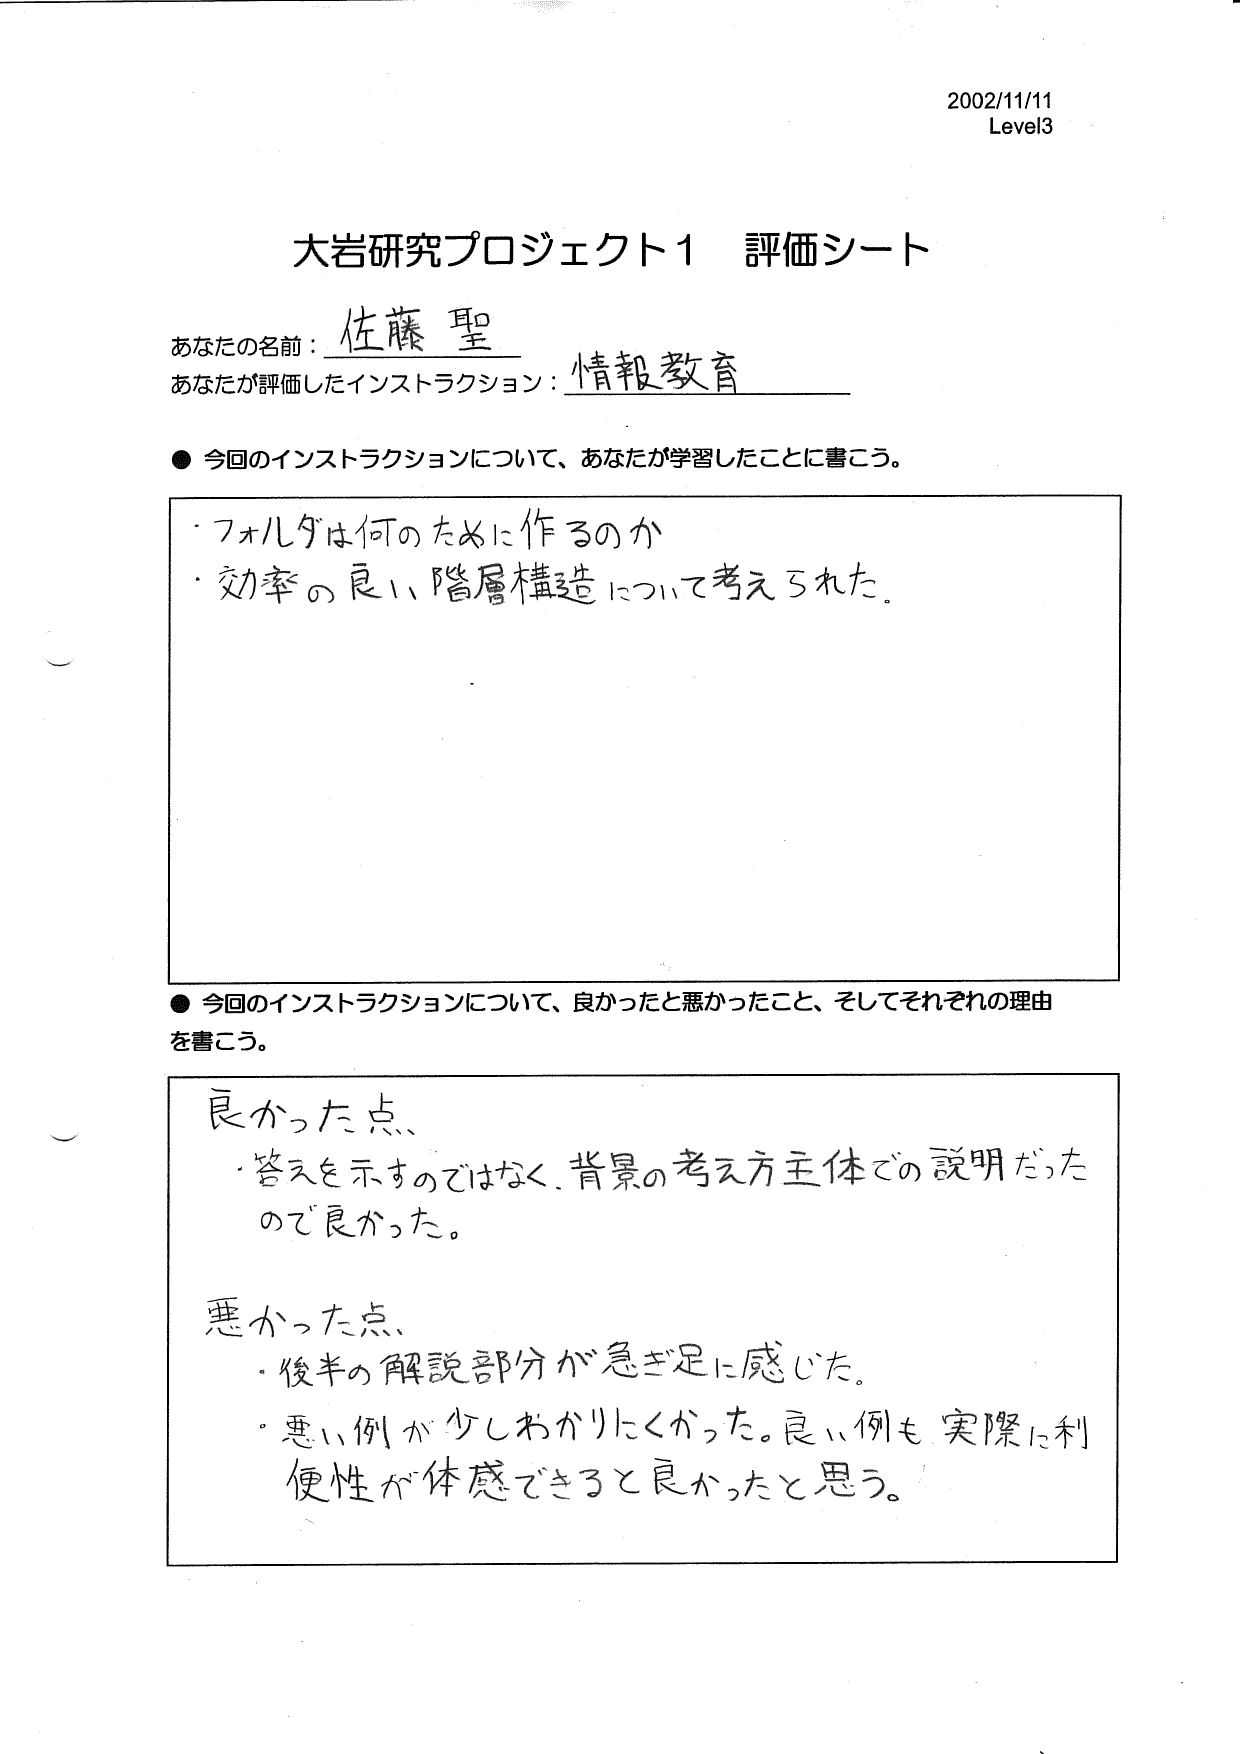 2002/11/11
Level3
大岩研究プロジェクト１　評価シート
あなたの名前：佐藤 聖
あなたが評価したインストラクション：情報教育
● 今回のインストラクションについて、あなたが学習したことに書こう。
・フォルダは何のために作るのか
・効率の良い階層構造について考えられた。
● 今回のインストラクションについて、良かったと悪かったこと、そしてそれぞれの理由
を書こう。
良かった点、
・答えを示すのではなく、背景の考え方主体での説明だった
ので良かった。
悪かった点、
・後半の解説部分が急ぎ足に感じた。
・悪い例が少しわかりにくかった。良い例も実際に利
便性が体感できると良かったと思う。